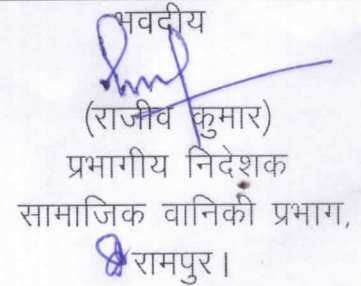 भवदीय
(राजीव कुमार)
प्रभागीय निदेशक
सामाजिक वानिकी प्रभाग,
रामपुर।